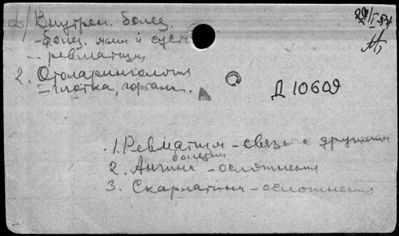 1) Внутрен. болез.
- болез. мышц и суст
-- ревматизм
2. Отоларингология
- глотка, гортань.
29/I-54
Д 10609
1. Ревматизм - связь с другими болезнями
2. Ангина - осложнения
3. Скарлатина - осложнения